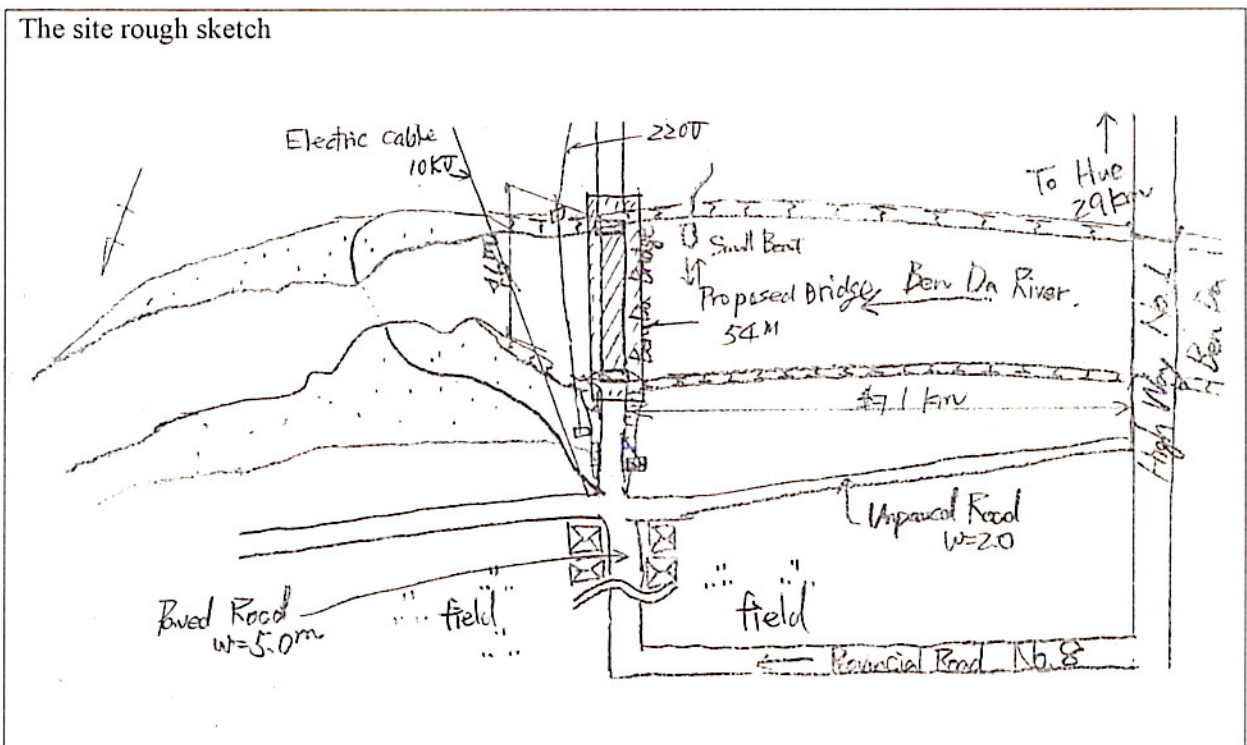 The site rough sketch
Electric cable
10KV
220V
To Hue
29km
41m
Small Boat
Proposed Bridge
54M
Ben Da River.
Bridge
High Way No.1
Ben Da
1 km
Unpaved Road
W=2.0
Paved Road
W=5.0m
field
field
Provincial Road No.8